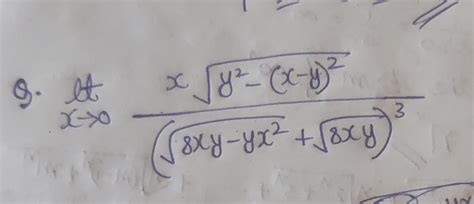 Q. lt x→0 x √(y² - (x-y)²) / (√(8xy - yx²) + √(8xy))³